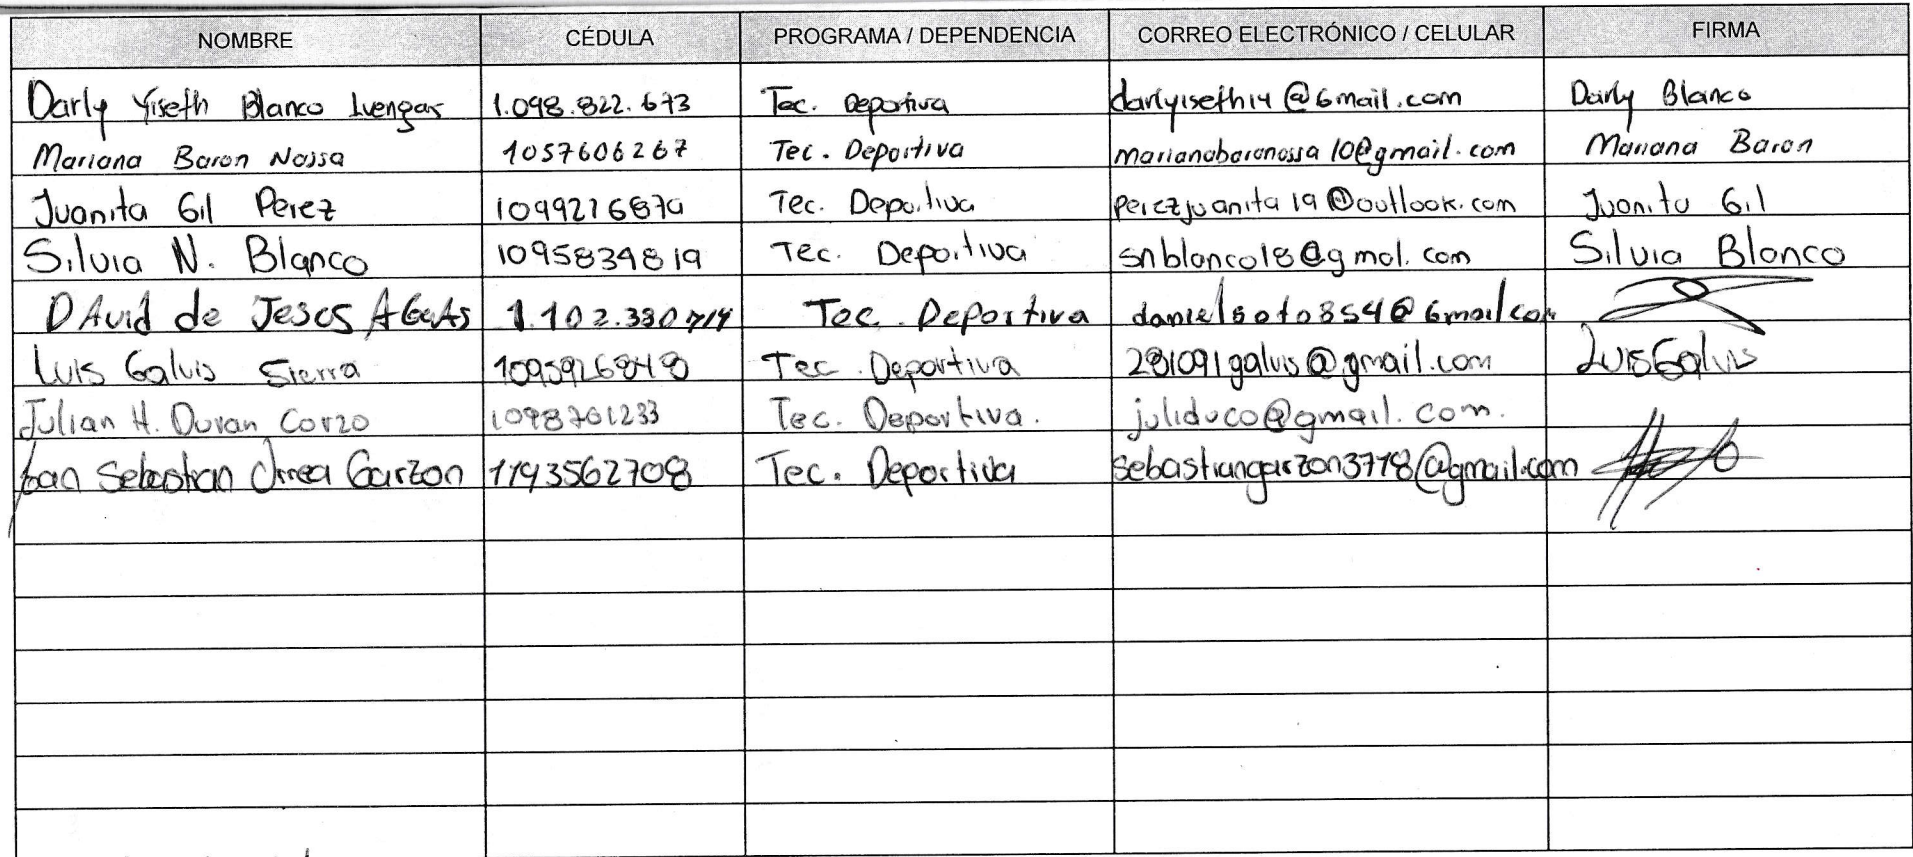 NOMBRE CÉDULA PROGRAMA / DEPENDENCIA CORREO ELECTRÓNICO / CELULAR FIRMA
Darly Yiseth Blanco Luengas 1.098.822.673 Tec. Deportiva darlyiseth14@Gmail.com Darly Blanco
Mariana Baron Nossa 1057606267 Tec. Deportiva marianabaronossa10@gmail.com Mariana Baron
Juanita Gil Perez 1099216879 Tec. Deportiva perezjuanita19@outlook.com Juanita Gil
Silvia N. Blanco 1095834819 Tec. Deportiva snblanco18@gmal.com Silvia Blanco
DAvid de Jesos AGuAs 1.102.330714 Tec. Deportiva danielsoto8546@Gmailcom
Luis Galvis Sierra 1095926848 Tec. Deportiva 281091galvis@gmail.com Luis Galvis
Julian H. Duran Corzo 1098701233 Tec. Deportiva. juliduco@gmail.com.
Joan Sebastian Urrea Garzon 1193562708 Tec. Deportiva sebastiangarzon3718@gmail.com